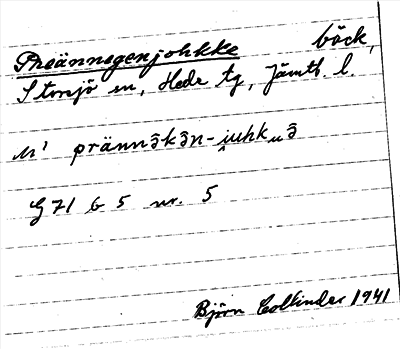 Preännegenjohkke bäck,
Storsjö sn, Hede tg, Jämtl. l.
M¹ prännə̑kə̑n-i̭uhkᵤə̑
G 71 b 5 nr. 5
Björn Collinder 1941